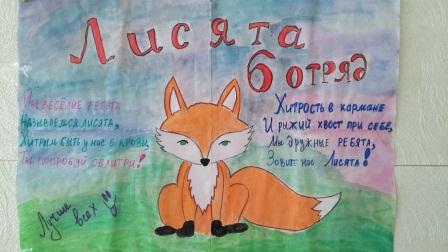 Лисята
6 отряд
Мы весёлые ребята
Называемся лисята,
Хитрым быть у нас в крови,
Ты попробуй облитри!
Хитрость в кармане
И рыжий хвост при себе,
Мы дружные ребята,
Зовите нас Лисята!
Лучше
всех